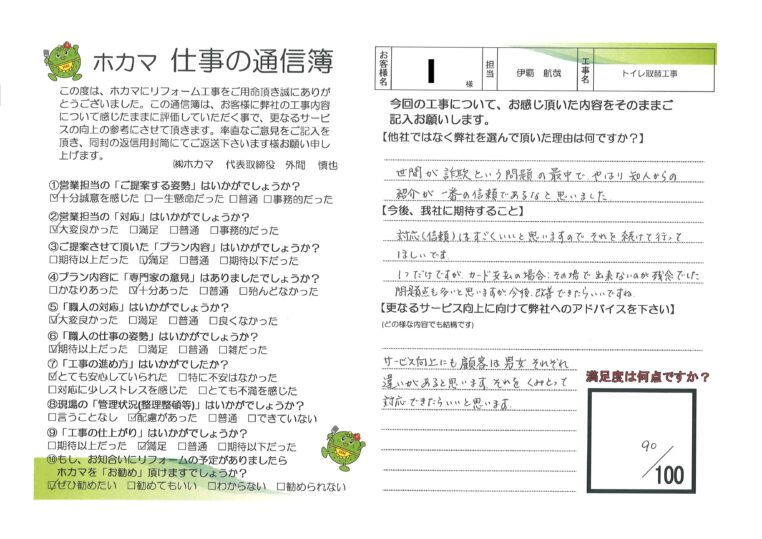 ホカマ 仕事の通信簿
この度は、ホカマにリフォーム工事をご用命頂き誠にありが
とうございました。この通信簿は、お客様に弊社の工事内容
について感じたままに評価していただく事で、更なるサービス
の向上の参考にさせて頂きます。率直なご意見をご記入を
頂き、同封の返信用封筒にてご返送下さいます様お願い申し
上げます。
㈱ホカマ 代表取締役 外間 慎也
①営業担当の「ご提案する姿勢」はいかがでしょうか?
☑十分誠意を感じた □一生懸命だった □普通 □事務的だった
②営業担当の「対応」はいかがでしょうか?
☑大変良かった □満足 □普通 □事務的だった
③ご提案させて頂いた「プラン内容」はいかがでしょうか?
□期待以上だった ☑満足 □普通 □期待以下だった
④プラン内容に「専門家の意見」はありましたでしょうか?
□かなりあった ☑十分あった □普通 □殆んどなかった
⑤「職人の対応」はいかがでしょうか?
☑大変良かった □満足 □普通 □良くなかった
⑥「職人の仕事の姿勢」はいかがでしょうか?
☑期待以上だった □満足 □普通 □雑だった
⑦「工事の進め方」はいかがでしたか?
☑とても安心していられた □特に不安はなかった
□対応に少しストレスを感じた □とても不満を感じた
⑧現場の「管理状況(整理整頓等)」はいかがでしょうか?
□言うことなし ☑配慮があった □普通 □できていない
⑨「工事の仕上がり」はいかがでしょうか?
□期待以上だった ☑満足 □普通 □期待以下だった
⑩もし、お知合いにリフォームの予定がありましたら
ホカマを「お勧め」頂けますでしょうか?
☑ぜひ勧めたい □勧めてもいい □わからない □勧められない
お客様名 I 様 担当 伊覇 航哉 工事名 トイレ取替工事
今回の工事について、お感じ頂いた内容をそのままご
記入お願いします。
【他社ではなく弊社を選んで頂いた理由は何ですか?】
世間が詐欺という問題の最中で、やはり知人からの
紹介が一番の信頼であるなと思いました
【今後、我社に期待すること】
対応(信頼)はすごくいいと思いますので それを続けて行って
ほしいです.
1つだけですが カード支払の場合:その場で出来ないのが残念でした
問題点も多いと思いますが今後、改善できたらいいですね.
【更なるサービス向上に向けて弊社へのアドバイスを下さい】
(どの様な内容でも結構です)
サービス向上にも顧客は男女それぞれ
違いがあると思います.それを くみとって
対応できたらいいと思います.
満足度は何点ですか?
90
/100